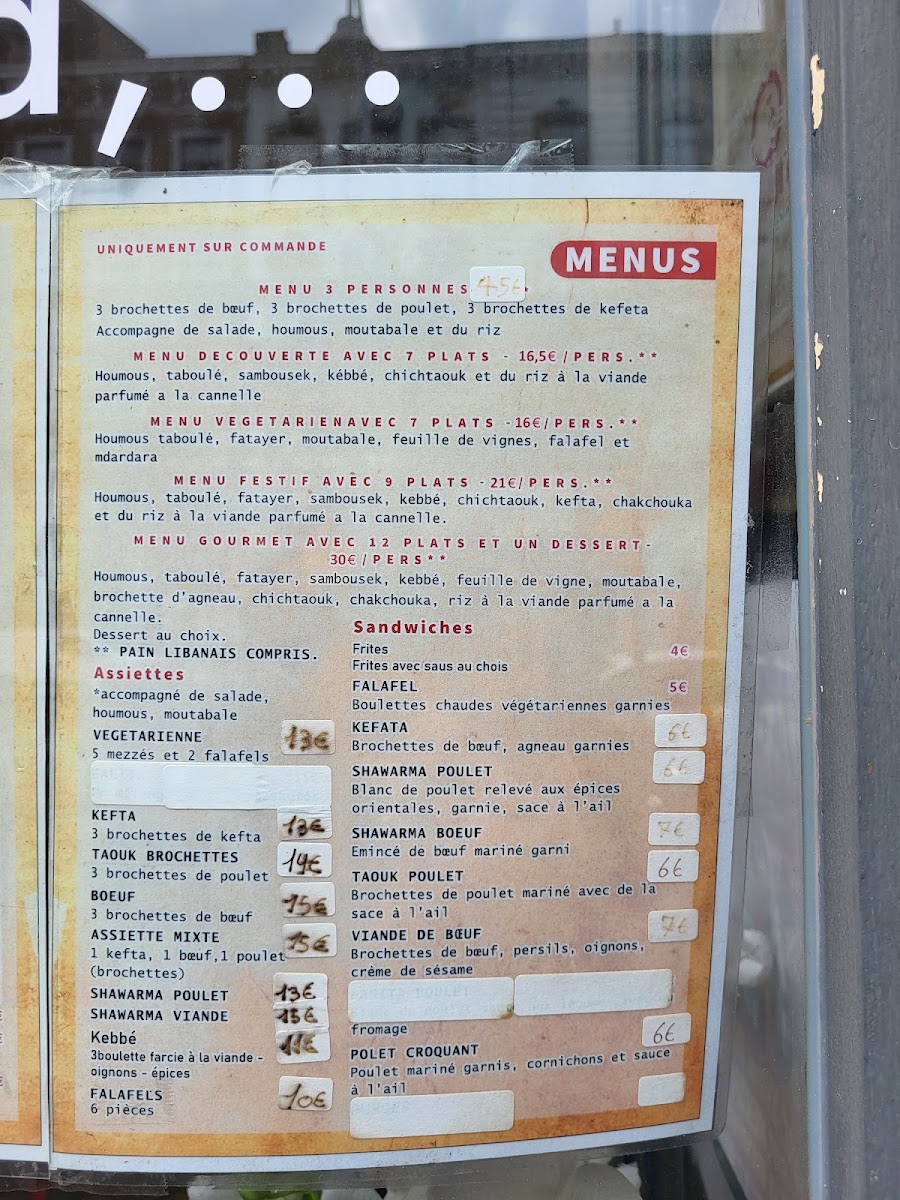 UNIQUEMENT SUR COMMANDE
MENUS
MENU 3 PERSONNES 45€
3 brochettes de bœuf, 3 brochettes de poulet, 3 brochettes de kefeta
Accompagne de salade, houmous, moutabale et du riz
MENU DECOUVERTE AVEC 7 PLATS - 16,5€/PERS.**
Houmous, taboulé, sambousek, kébbé, chichtaouk et du riz à la viande
parfumé a la cannelle
MENU VEGETARIENAVEC 7 PLATS -16€/PERS.**
Houmous taboulé, fatayer, moutabale, feuille de vignes, falafel et
mdardara
MENU FESTIF AVEC 9 PLATS -21€/PERS.**
Houmous, taboulé, fatayer, sambousek, kebbé, chichtaouk, kefta, chakchouka
et du riz à la viande parfumé a la cannelle.
MENU GOURMET AVEC 12 PLATS ET UN DESSERT-
30€/PERS**
Houmous, taboulé, fatayer, sambousek, kebbé, feuille de vigne, moutabale,
brochette d'agneau, chichtaouk, chakchouka, riz à la viande parfumé a la
cannelle.
Dessert au choix.
** PAIN LIBANAIS COMPRIS.
Assiettes
*accompagné de salade,
houmous, moutabale
VEGETARIENNE 13€
5 mezzés et 2 falafels
KEFTA 13€
3 brochettes de kefta
TAOUK BROCHETTES 14€
3 brochettes de poulet
BOEUF 15€
3 brochettes de bœuf
ASSIETTE MIXTE 15€
1 kefta, 1 bœuf,1 poulet
(brochettes)
SHAWARMA POULET 13€
SHAWARMA VIANDE 15€
Kebbé 11€
3boulette farcie à la viande -
oignons - épices
FALAFELS 10€
6 pièces
Sandwiches
Frites 4€
Frites avec saus au chois
FALAFEL 5€
Boulettes chaudes végétariennes garnies
KEFATA 6€
Brochettes de bœuf, agneau garnies
SHAWARMA POULET 6€
Blanc de poulet relevé aux épices
orientales, garnie, sace à l'ail
SHAWARMA BOEUF 7€
Emincé de bœuf mariné garni
TAOUK POULET 6€
Brochettes de poulet mariné avec de la
sace à l'ail
VIANDE DE BŒUF 7€
Brochettes de bœuf, persils, oignons,
crème de sésame
fromage
POLET CROQUANT 6€
Poulet mariné garnis, cornichons et sauce
à l'ail